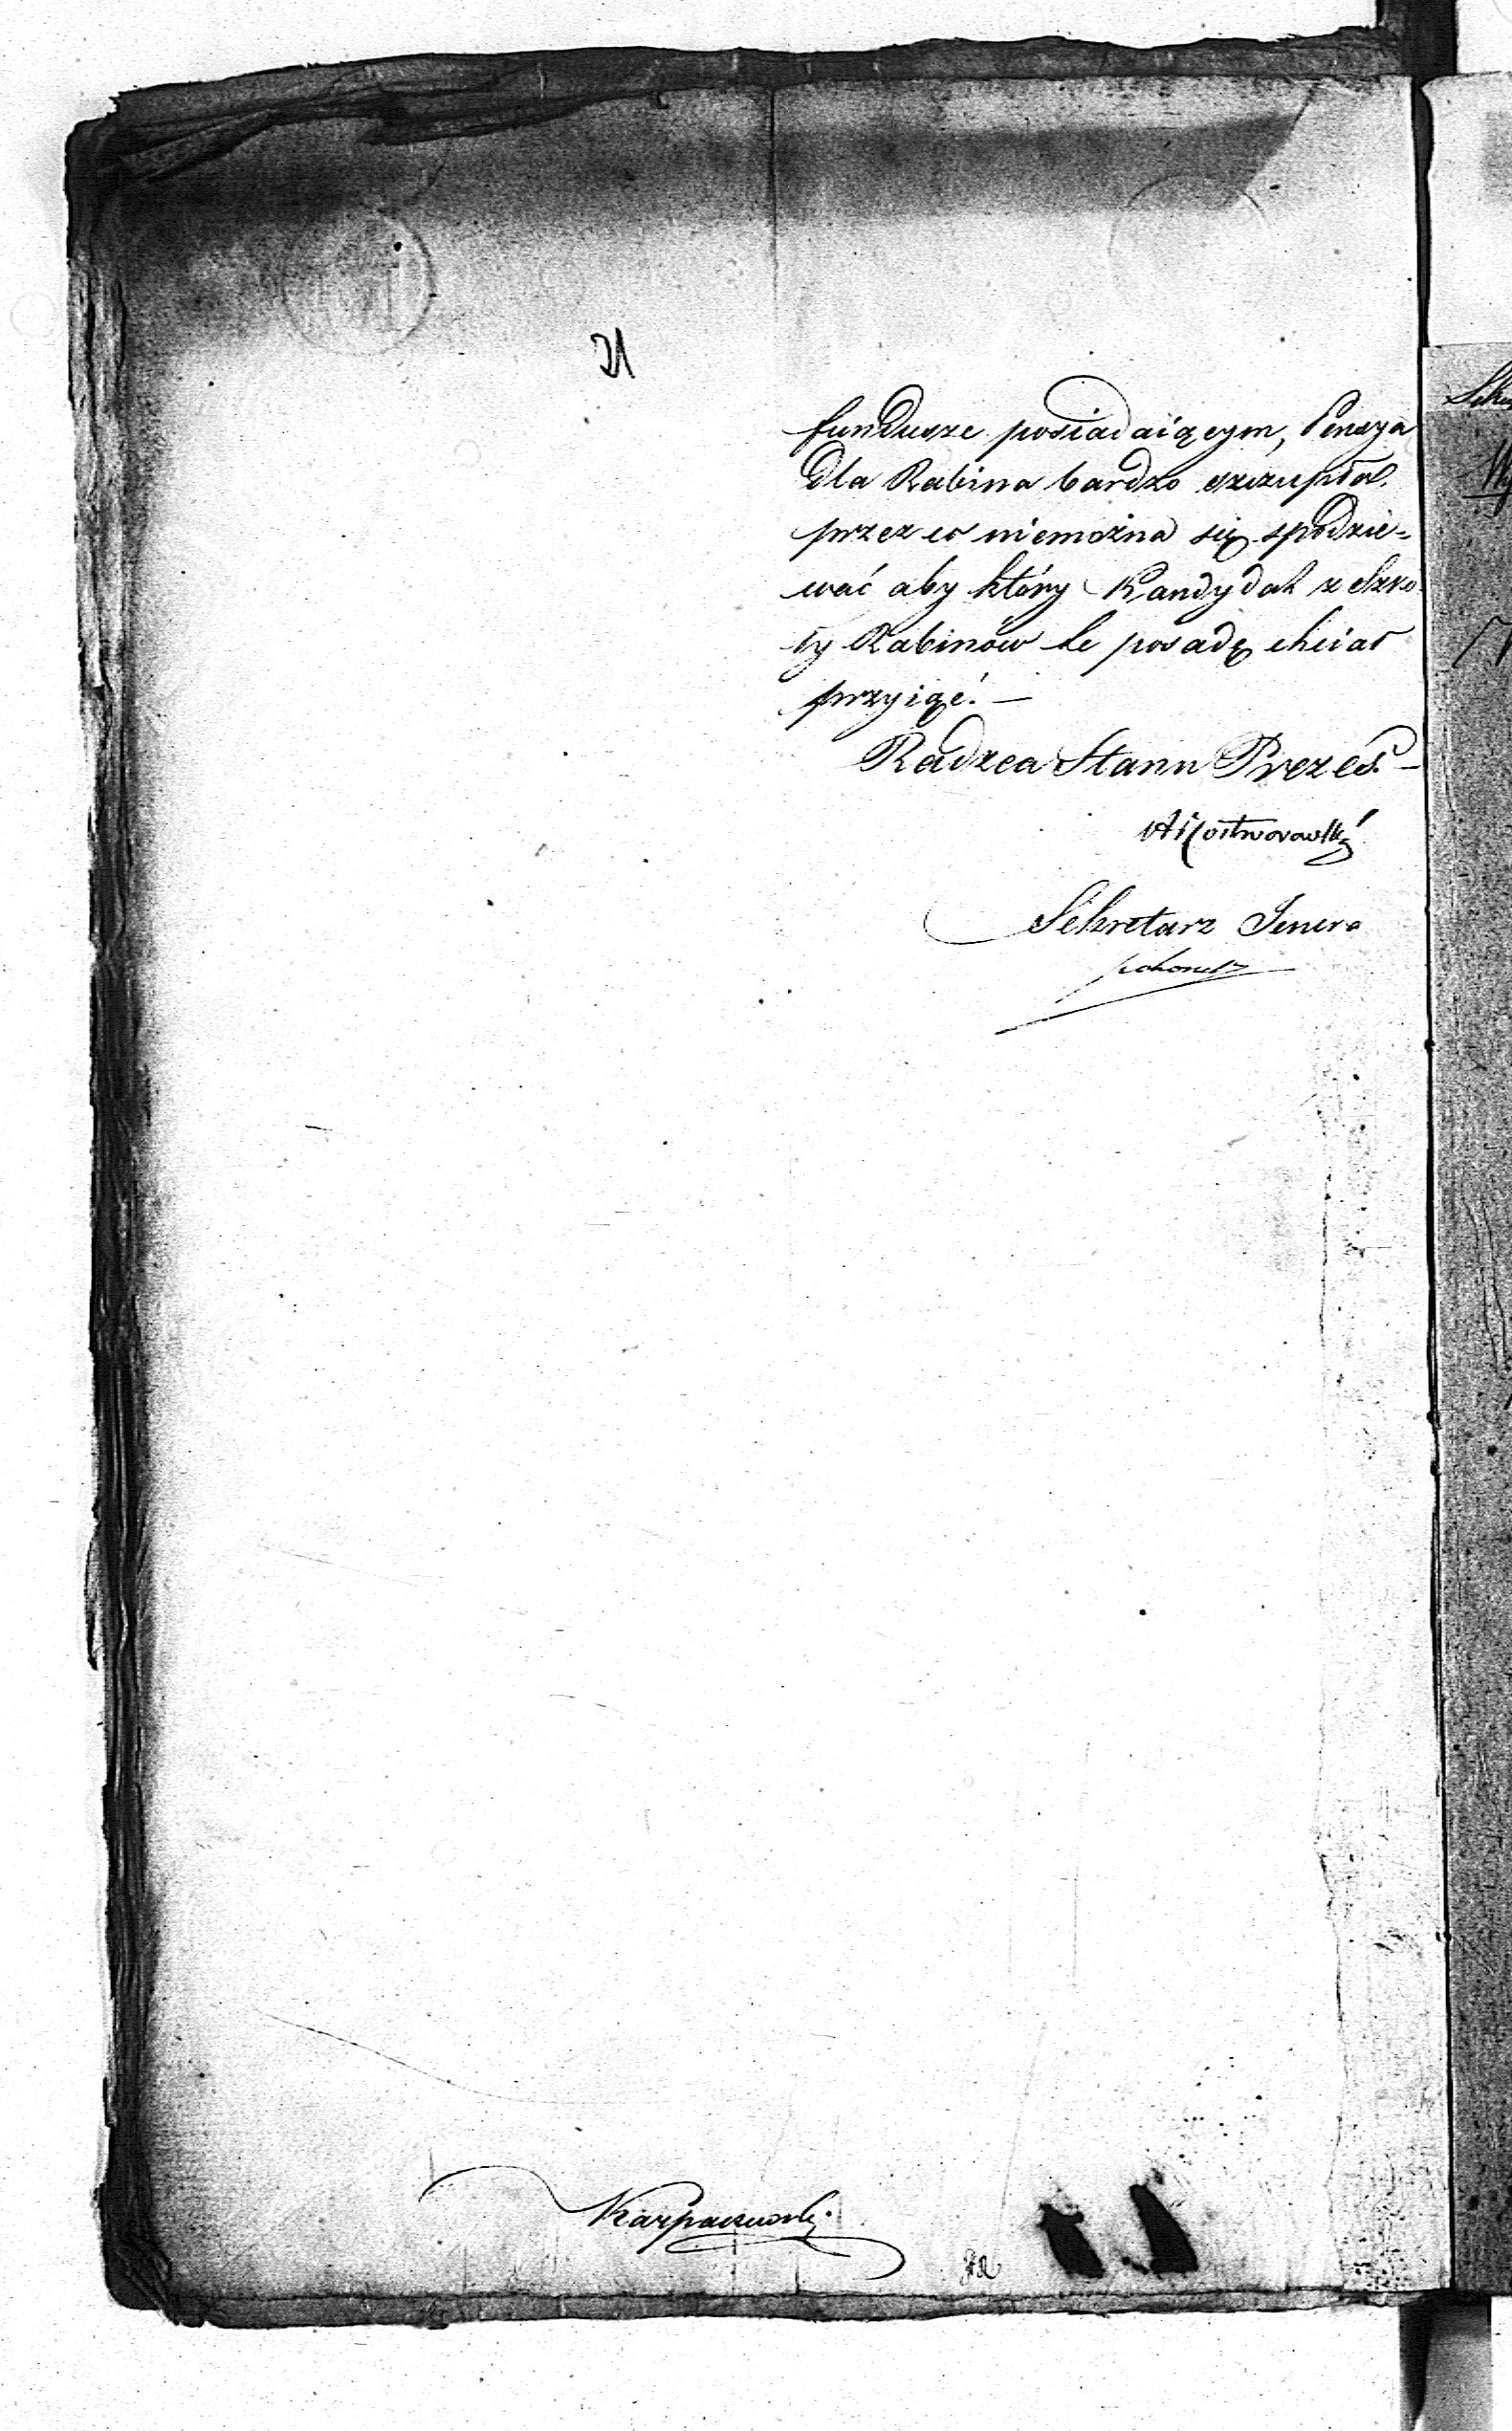 21
fundusze posiadaiącym, Pensya
dla Rabina bardzo szczupła.
przez co niemożna się spodzie=
wać aby który Kandydat z Szko
ły Rabinów tę posadę chciał
przyiąć. —
Radzca Stanu Prezes. —
Sekretarz Jenera
Karpaczewski